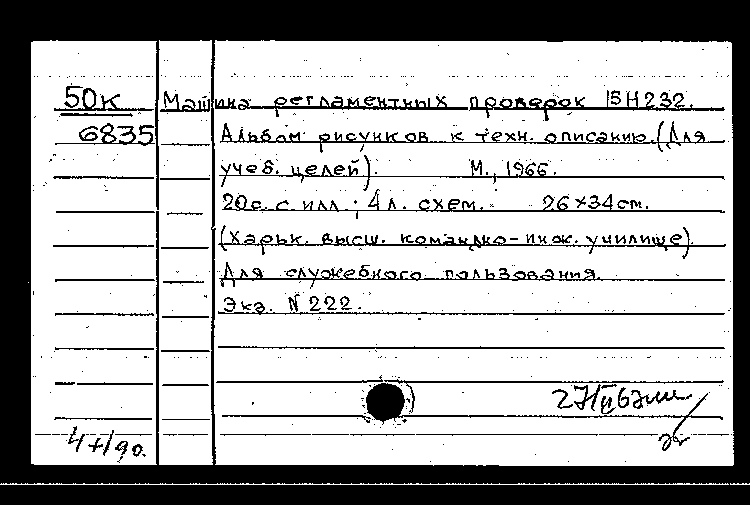 50к Машина регламентных проверок 15Н232.
6835 Альбом рисунков к техн. описанию. (Для
учеб. целей). М., 1966.
20с. с илл.; 4 л. схем. 26×34cm.
(Харьк. высш. командно-инж. училище).
Для служебного пользования.
Экз. N 222.
27/II 67